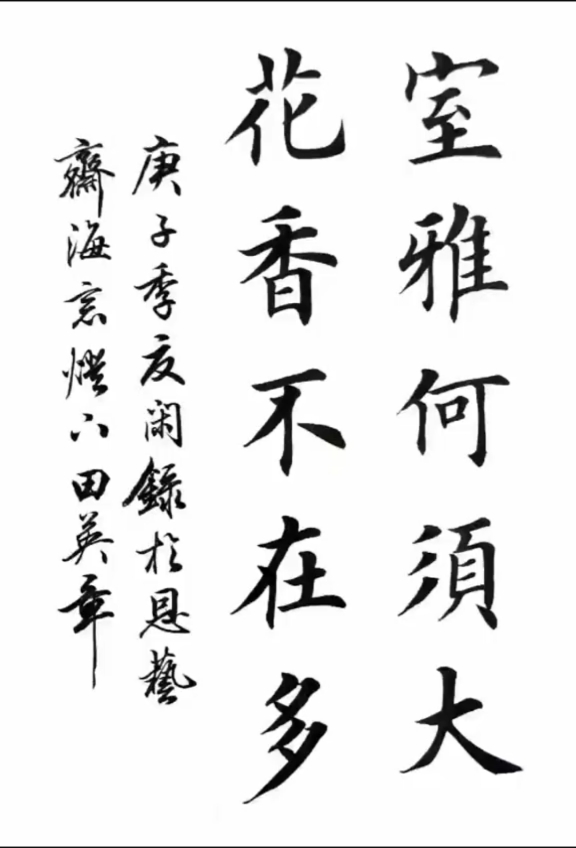 室雅何須大
花香不在多
庚子季夏閑錄於恩藝
齋海窓燈下田英章